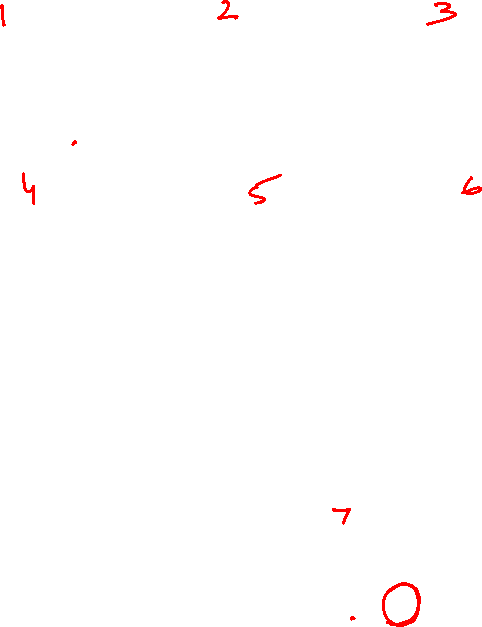 1 2 3
4 5 6
7
. O